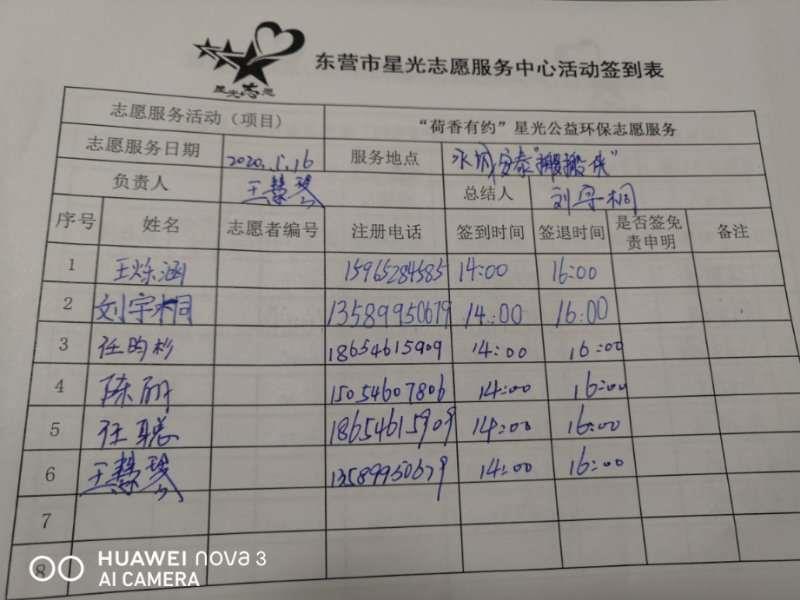 星光志愿
东营市星光志愿服务中心活动签到表
志愿服务活动（项目） “荷香有约”星光公益环保志愿服务
志愿服务日期 2020.5.16 服务地点 "搬搬侠"
负责人 王慧琴 总结人 刘宇桐
序号 姓名 志愿者编号 注册电话 签到时间 签退时间 是否签免责申明 备注
1 王烁涵 15965284585 14:00 16:00
2 刘宇桐 13589950679 14:00 16:00
3 任昀杉 18654615909 14:00 16:00
4 陈丽 15054607806 14:00 16:00
5 任聪 18654615909 14:00 16:00
6 王慧琴 13589950679 14:00 16:00
7
8
HUAWEI nova 3
AI CAMERA